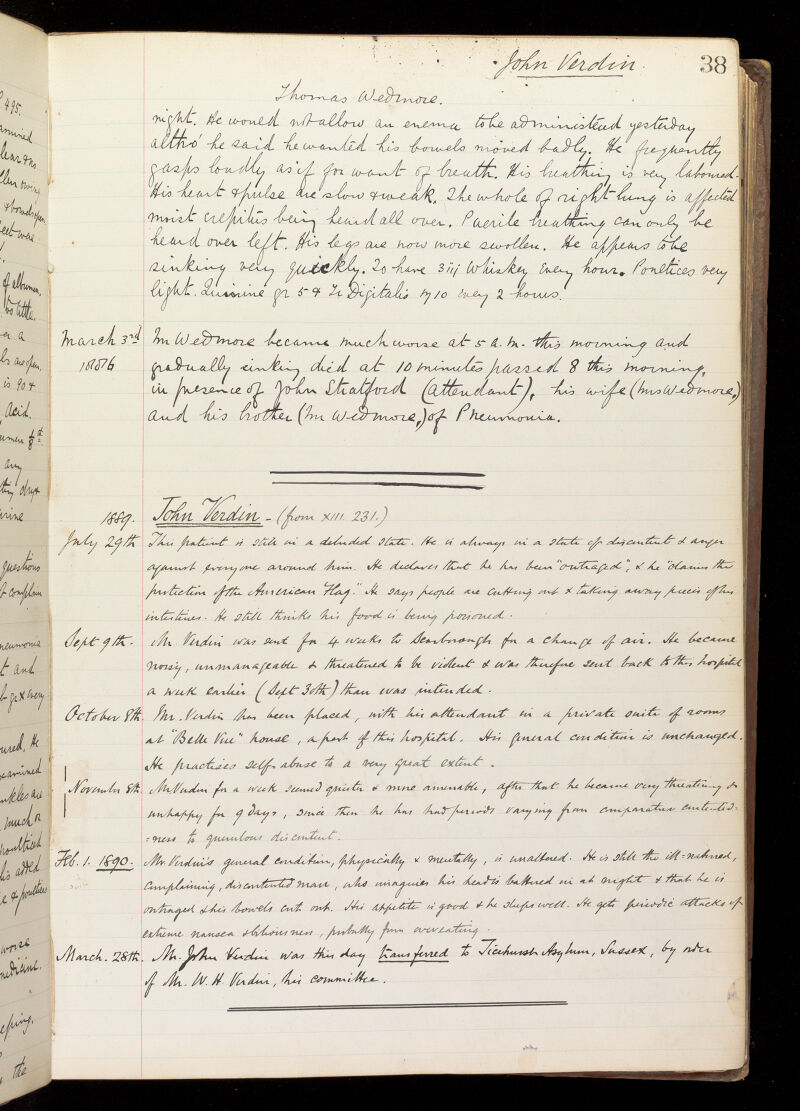 John Verdin. 38
Thomas Wedmore.
night. He would not allow an enema to be administered yesterday
altho' he said he wanted his bowels moved badly. He frequently
gasps loudly as if for want of breath. His breathing is very laboured.
His heart & pulse are slow & weak. The whole of right lung is affected
moist crepitus being heard all over. Puerile breathing can only be
heard over left. His legs are now more swollen. He appears to be
sinking very quickly. To have ʒiij Whiskey every hour. Poultices very
light. Quinine gr 5 & Tr Digitalis ♏︎10 every 2 hours.
March 3rd Mr Wedmore became much worse at 5 a.m. this morning and
1886 gradually sinking died at 10 minutes passed 8 this morning,
in presence of John Stratford (attendant), his wife (Mrs Wedmore,)
and his brother (Mr Wedmore,) of Pneumonia.
1889. John Verdin - (from XIII. 231.)
July 29th This patient is still in a deluded state. He is always in a state of discontent & anger
against everyone around him. He declares that he has been "outraged", & he "claims the
protection of the American Flag." He says people are cutting out & taking away pieces of his
intestines. He still thinks his food is being poisoned.
Sept 9th. Mr. Verdin was sent for 4 weeks to Scarborough for a change of air. He became
noisy, unmanageable & threatened to be violent & was therefore sent back to this hospital
a week earlier (Sept 30th) than was intended.
October 8th. Mr. Verdin has been placed, with his attendant in a private suite of rooms
at "Belle Vue" house, a part of this hospital. His general condition is unchanged.
He practises self-abuse to a very great extent.
November 8th. Mr Verdin for a week seemed quieter & more amenable, after that he became very threatening &
unhappy for 9 days, since then he has had periods varying from comparative contented=
=ness to querulous discontent.
Feb. 1. 1890. Mr. Verdin's general condition, physically & mentally, is unaltered. He is still the ill-natured,
complaining, discontented man, who imagines his head is battered in at night & that he is
outraged & his bowels cut out. His appetite is good & he sleeps well. He gets periodic attacks of
extreme nausea & biliousness, probably from overeating.
March. 28th. Mr. John Verdin was this day transferred to Ticehurst Asylum, Sussex, by order
of Mr. W. H Verdin, his committee.